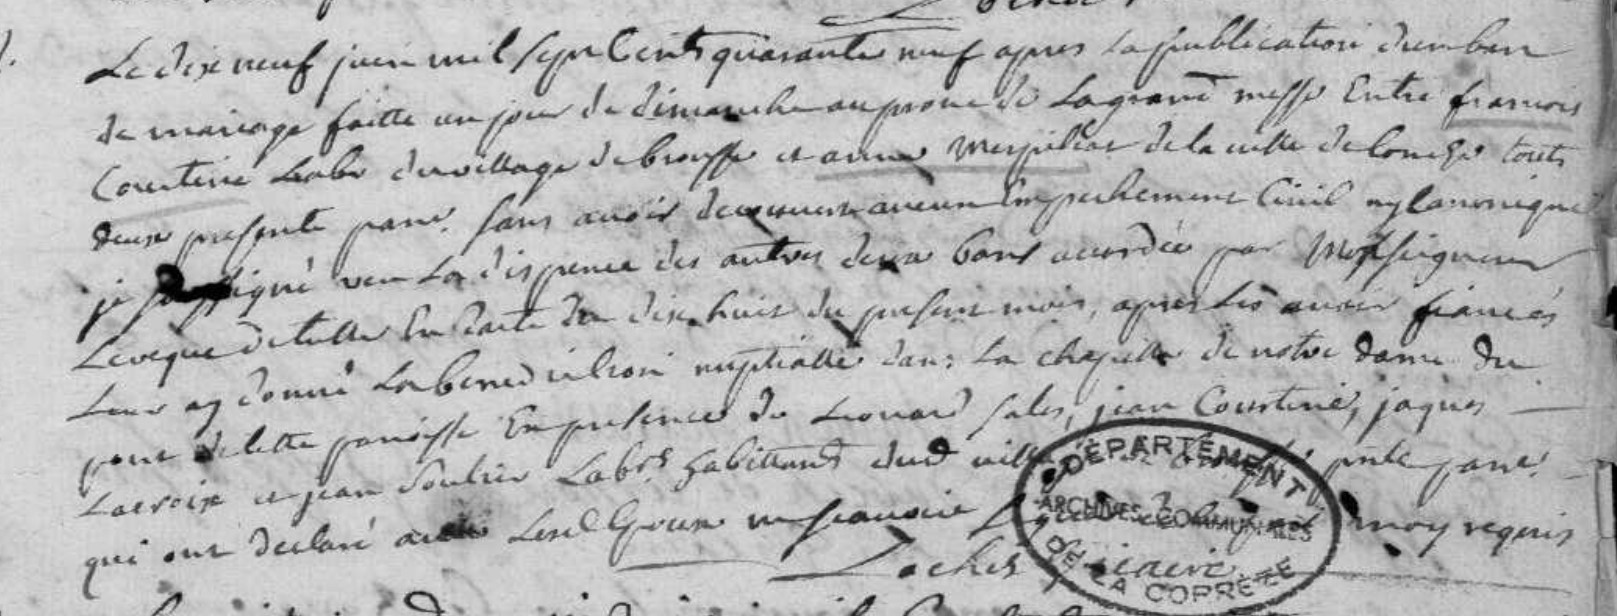 Le dix neuf juin mil sept Cents quarante neuf apres la publication d'un ban
de mariage faitte un jour de dimanche au prone de La grand messe Entre francois
Courteine Labr du village de brousse et anne Mespilliat de la ville de touts
deux presente parr. sans avoir decouvert aucun Empechement Civil ny Canonique
je soussigné veu La dispence des autres deux bans accordée par Monseigneur
Leveque de tulle En datte du dix huit du present mois, apres Les avoir fiancés
Leur ay donné La benediction nuptialle dans La chapelle de notre dame du
pont de cette paroisse En presence de Leonard Sales, jean Courteine, jaques
Lacroix et jean Soulier Labrs. habittants dud. ville parr.
qui ont declaré avec Lesd. Epoux ne scavoir moy requis
Laches vicaire
DÉPARTEMENT
ARCHIVES COMMUNALES
DE LA CORRÈZE